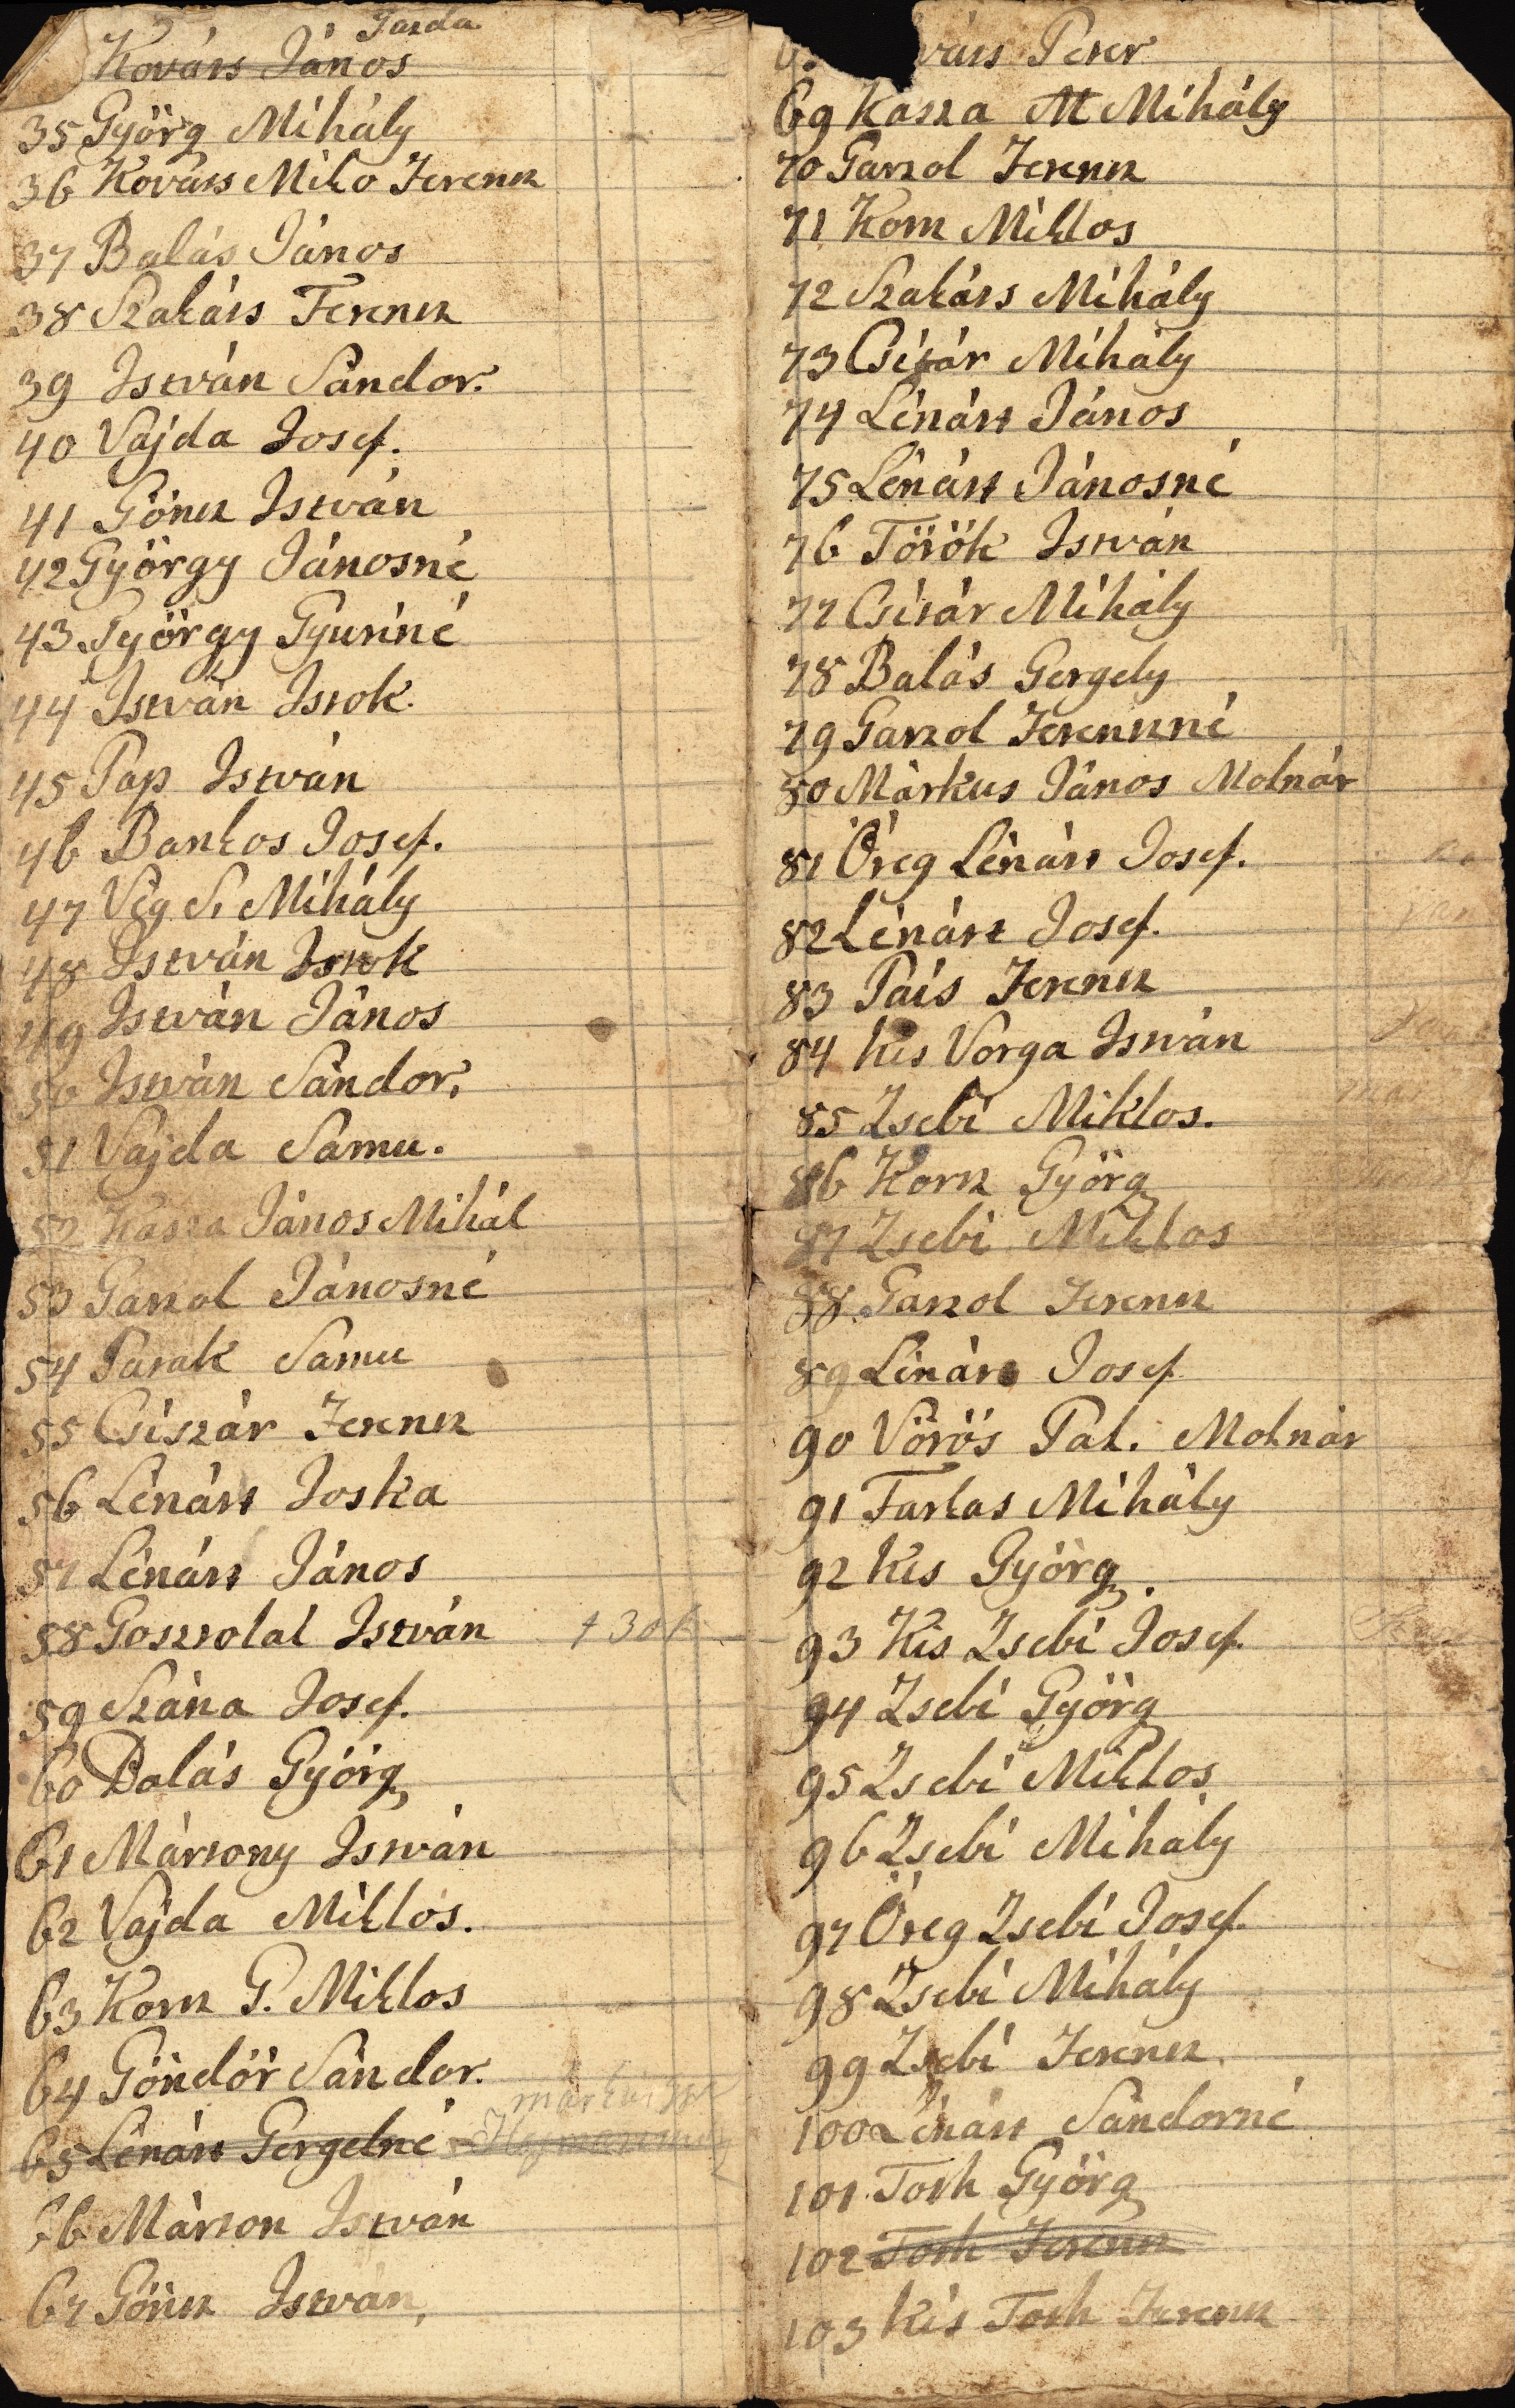 Tarda
Kováts János
35 Györg Mihály
36 Kováts Miko Ferencz
37 Balás János
38 Szakáts Ferencz
39 István Sándor.
40 Vajda Josef.
41 Göncz István
42 György Jánosné
43 György Gyuriné
44 István Istok.
45 Pap István
46 Bankos Josef.
47 Vég S. Mihály
48 István Istok
49 István János
50 István Sándor.
51 Vajda Samu.
52 Kasza János Mihál
53 Gaszol Jánosné
54 Parak Samu
55 Csiszár Ferencz
56 Lénárt Joska
57 Lénárt János
58 Gosztolai István
59 Szána Josef.
60 Balás Györg
61 Mártony István
62 Vajda Miklós.
63 Korcz G. Miklos
64 Göndör Sándor.
65 Lénárt Gergelné
66 Márton István
67 Göncz István,
váts Peter
69 Kasza M Mihály
70 Gaszol Ferencz
71 Korcz Miklos
72 Szakáts Mihály
73 Csizár Mihály
74 Lénárt János
75 Lénárt Jánosné
76 Török István
77 Csizár Mihály
78 Balás Gergely
79 Gaszol Ferenczné
80 Márkus János Molnár
81 Öreg Lénárt Josef.
82 Lénárt Josef.
83 Pais Ferencz
84 Kis Varga István
85 Zsebi Miklos.
86 Korcz Györg
87 Zsebi Miklos
88 Gaszol Ferencz
89 Lénárt Josef
90 Vörös Pal. Molnár
91 Farkas Mihály
92 Kis Györg.
93 Kis Zsebi Josef.
94 Zsebi Györg
95 Zsebi Miklos
96 Zsebi Mihály
97 Öreg Zsebi Josef.
98 Zsebi Mihály
99 Zsebi Ferencz.
100 Lénárt Sándorné
101 Toth Györg
102 Toth Ferencz
103 Kis Toth Ferencz